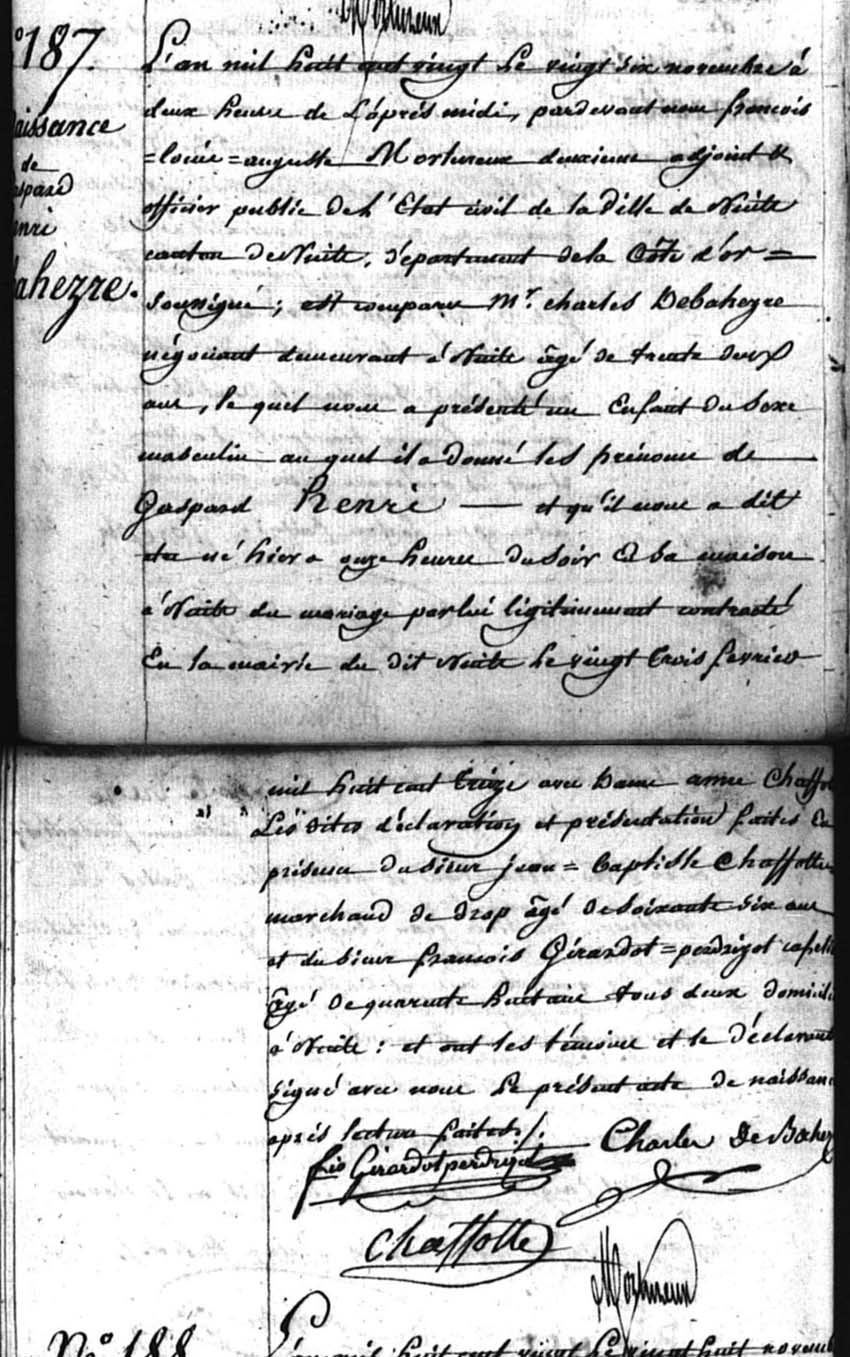 Morizeux
N° 187.
Naissance
de
Gaspard
Henri
Debahezre.
L'an mil huit cent vingt le vingt six novembre à
deux heures de l'après midi, pardevant nous françois
=louis=auguste Mortureux deuxieme adjoint &
officier public de l'Etat civil de la Ville de Nuits
canton de Nuits, département de la Côte d'or =
soussigné ; est comparu Mr. charles Debahezre
négociant demeurant à Nuits âgé de trente deux
ans, le quel nous a présenté un Enfant du Sexe
masculin au quel il a donné les prénoms de
Gaspard henri — et qu'il nous a dit
être né hier a onze heures du soir à sa maison
à Nuits du mariage par lui légitimement contracté
En la mairie du dit Nuits le vingt trois fevrier
mil huit cent treize avec Dame anne Chaffotte
Les dites déclaration et présentation faites En
présence du sieur jean=Baptiste Chaffotte
marchand de drap âgé de soixante six ans
et du sieur françois Girardot=perdrizot
âgé de quarente huit ans tous deux domiciliés
à Nuits : et ont les témoins et le déclarant
signé avec nous le présent acte de naissance
après lecture faite ./.
Charles De Bahezre
fis Girardot perdrizot
Chaffotte
Mortureux
N° 188
L'an mil huit cent vingt le vingt huit novembre